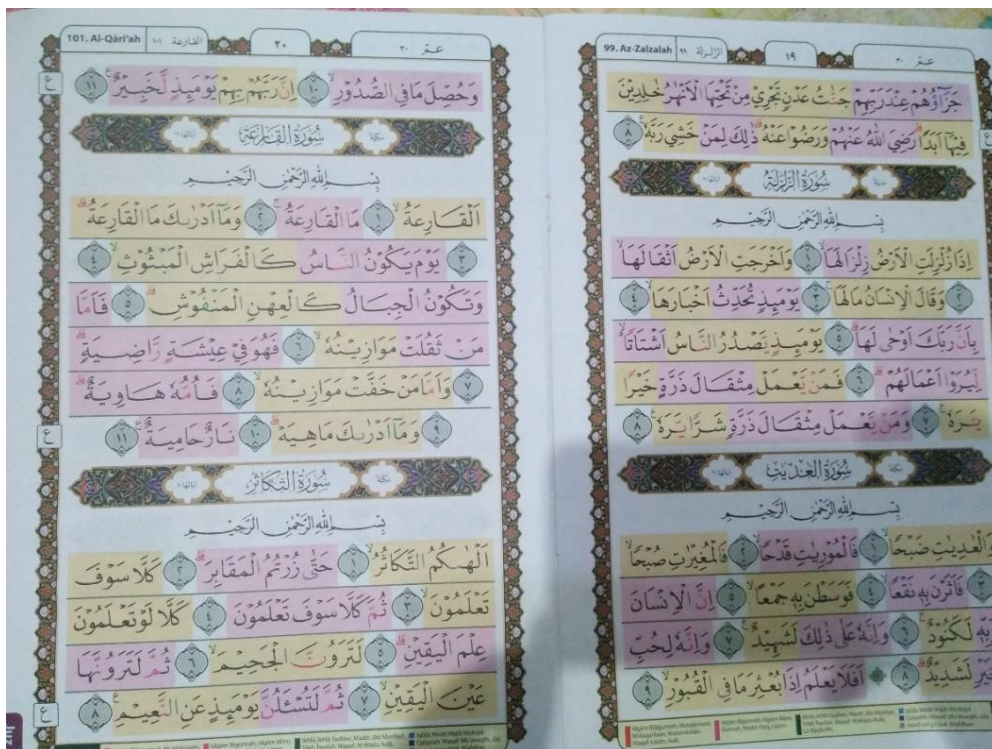 99. Az-Zalzalah ٩٩ الزلزلة
١٩
عم ٣٠
جَزَاۤؤُهُمْ عِنْدَ رَبِّهِمْ جَنّٰتُ عَدْنٍ تَجْرِيْ مِنْ تَحْتِهَا الْاَنْهٰرُ خٰلِدِيْنَ
فِيْهَآ اَبَدًا ۗرَضِيَ اللّٰهُ عَنْهُمْ وَرَضُوْا عَنْهُ ۗ ذٰلِكَ لِمَنْ خَشِيَ رَبَّهٗ ࣖ ٨
سُوْرَةُ الزَّلْزَلَةِ
بِسْمِ اللّٰهِ الرَّحْمٰنِ الرَّحِيْمِ
اِذَا زُلْزِلَتِ الْاَرْضُ زِلْزَالَهَاۙ ١ وَاَخْرَجَتِ الْاَرْضُ اَثْقَالَهَاۙ
٢ وَقَالَ الْاِنْسَانُ مَا لَهَاۚ ٣ يَوْمَىِٕذٍ تُحَدِّثُ اَخْبَارَهَاۙ ٤
بِاَنَّ رَبَّكَ اَوْحٰى لَهَاۗ ٥ يَوْمَىِٕذٍ يَّصْدُرُ النَّاسُ اَشْتَاتًا ەۙ
لِّيُرَوْا اَعْمَالَهُمْۗ ٦ فَمَنْ يَّعْمَلْ مِثْقَالَ ذَرَّةٍ خَيْرًا
يَّرَهٗۚ ٧ وَمَنْ يَّعْمَلْ مِثْقَالَ ذَرَّةٍ شَرًّا يَّرَهٗ ࣖ ٨
سُوْرَةُ الْعٰدِيٰتِ
بِسْمِ اللّٰهِ الرَّحْمٰنِ الرَّحِيْمِ
وَالْعٰدِيٰتِ ضَبْحًاۙ ١ فَالْمُوْرِيٰتِ قَدْحًاۙ ٢ فَالْمُغِيْرٰتِ صُبْحًاۙ
٣ فَاَثَرْنَ بِهٖ نَقْعًاۙ ٤ فَوَسَطْنَ بِهٖ جَمْعًاۙ ٥ اِنَّ الْاِنْسَانَ
لَكَنُوْدٌ ۚ ٦ وَاِنَّهٗ عَلٰى ذٰلِكَ لَشَهِيْدٌۚ ٧ وَاِنَّهٗ لِحُبِّ
لَشَدِيْدٌ ۗ ٨ ۞ اَفَلَا يَعْلَمُ اِذَا بُعْثِرَ مَا فِى الْقُبُوْرِۙ ٩
101. Al-Qāri'ah ١٠١ القارعة
٢٠
عم ٣٠
وَحُصِّلَ مَا فِى الصُّدُوْرِۙ ١٠ اِنَّ رَبَّهُمْ بِهِمْ يَوْمَىِٕذٍ لَّخَبِيْرٌ ࣖ ١١
سُوْرَةُ الْقَارِعَةِ
بِسْمِ اللّٰهِ الرَّحْمٰنِ الرَّحِيْمِ
اَلْقَارِعَةُۙ ١ مَا الْقَارِعَةُ ۚ ٢ وَمَآ اَدْرٰىكَ مَا الْقَارِعَةُ ۗ
٣ يَوْمَ يَكُوْنُ النَّاسُ كَالْفَرَاشِ الْمَبْثُوْثِۙ ٤
وَتَكُوْنُ الْجِبَالُ كَالْعِهْنِ الْمَنْفُوْشِۗ ٥ فَاَمَّا
مَنْ ثَقُلَتْ مَوَازِيْنُهٗۙ ٦ فَهُوَ فِيْ عِيْشَةٍ رَّاضِيَةٍۗ
٧ وَاَمَّا مَنْ خَفَّتْ مَوَازِيْنُهٗۙ ٨ فَاُمُّهٗ هَاوِيَةٌ ۗ
٩ وَمَآ اَدْرٰىكَ مَا هِيَهْۗ ١٠ نَارٌ حَامِيَةٌ ࣖ ١١
سُوْرَةُ التَّكَاثُرِ
بِسْمِ اللّٰهِ الرَّحْمٰنِ الرَّحِيْمِ
اَلْهٰىكُمُ التَّكَاثُرُۙ ١ حَتّٰى زُرْتُمُ الْمَقَابِرَۗ ٢ كَلَّا سَوْفَ
تَعْلَمُوْنَۙ ٣ ثُمَّ كَلَّا سَوْفَ تَعْلَمُوْنَ ٤ كَلَّا لَوْ تَعْلَمُوْنَ
عِلْمَ الْيَقِيْنِۗ ٥ لَتَرَوُنَّ الْجَحِيْمَۙ ٦ ثُمَّ لَتَرَوُنَّهَا
عَيْنَ الْيَقِيْنِۙ ٧ ثُمَّ لَتُسْـَٔلُنَّ يَوْمَىِٕذٍ عَنِ النَّعِيْمِ ࣖ ٨